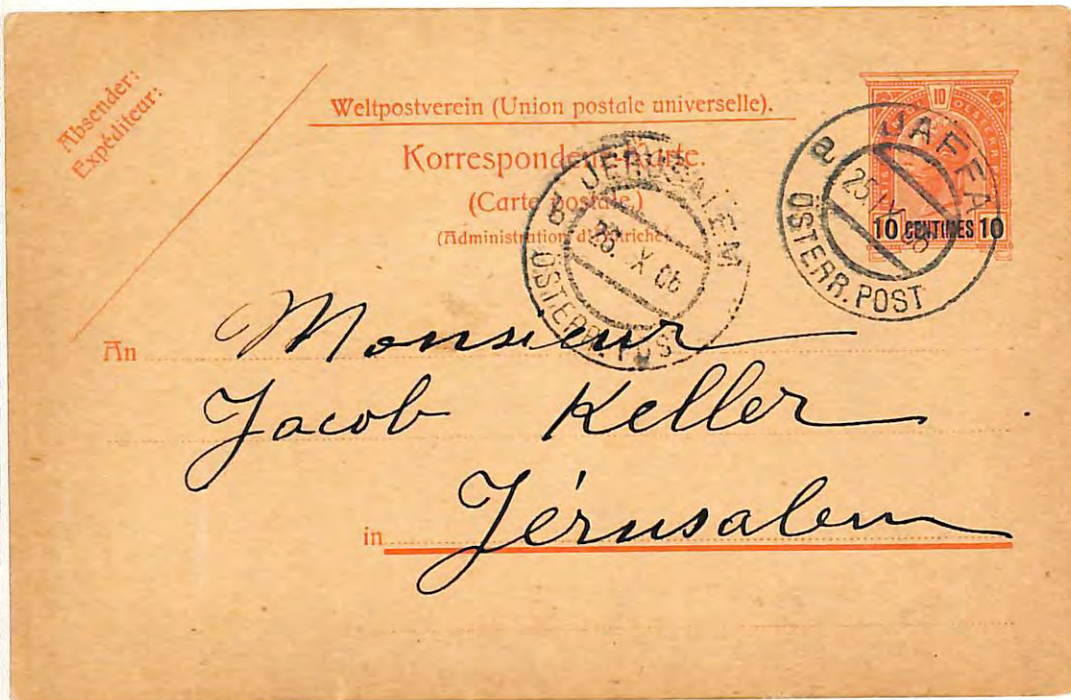 Absender:
Expéditeur:
Weltpostverein (Union postale universelle).
Korrespondenz-Karte.
(Carte postale.)
(Administration d'Autriche)
10
10 CENTIMES 10
a JAFFA
25. IX 06
ÖSTERR. POST
b JERUSALEM
26. X 06
ÖSTERR. POST
An Monsieur
Jacob Keller
in Jérusalem